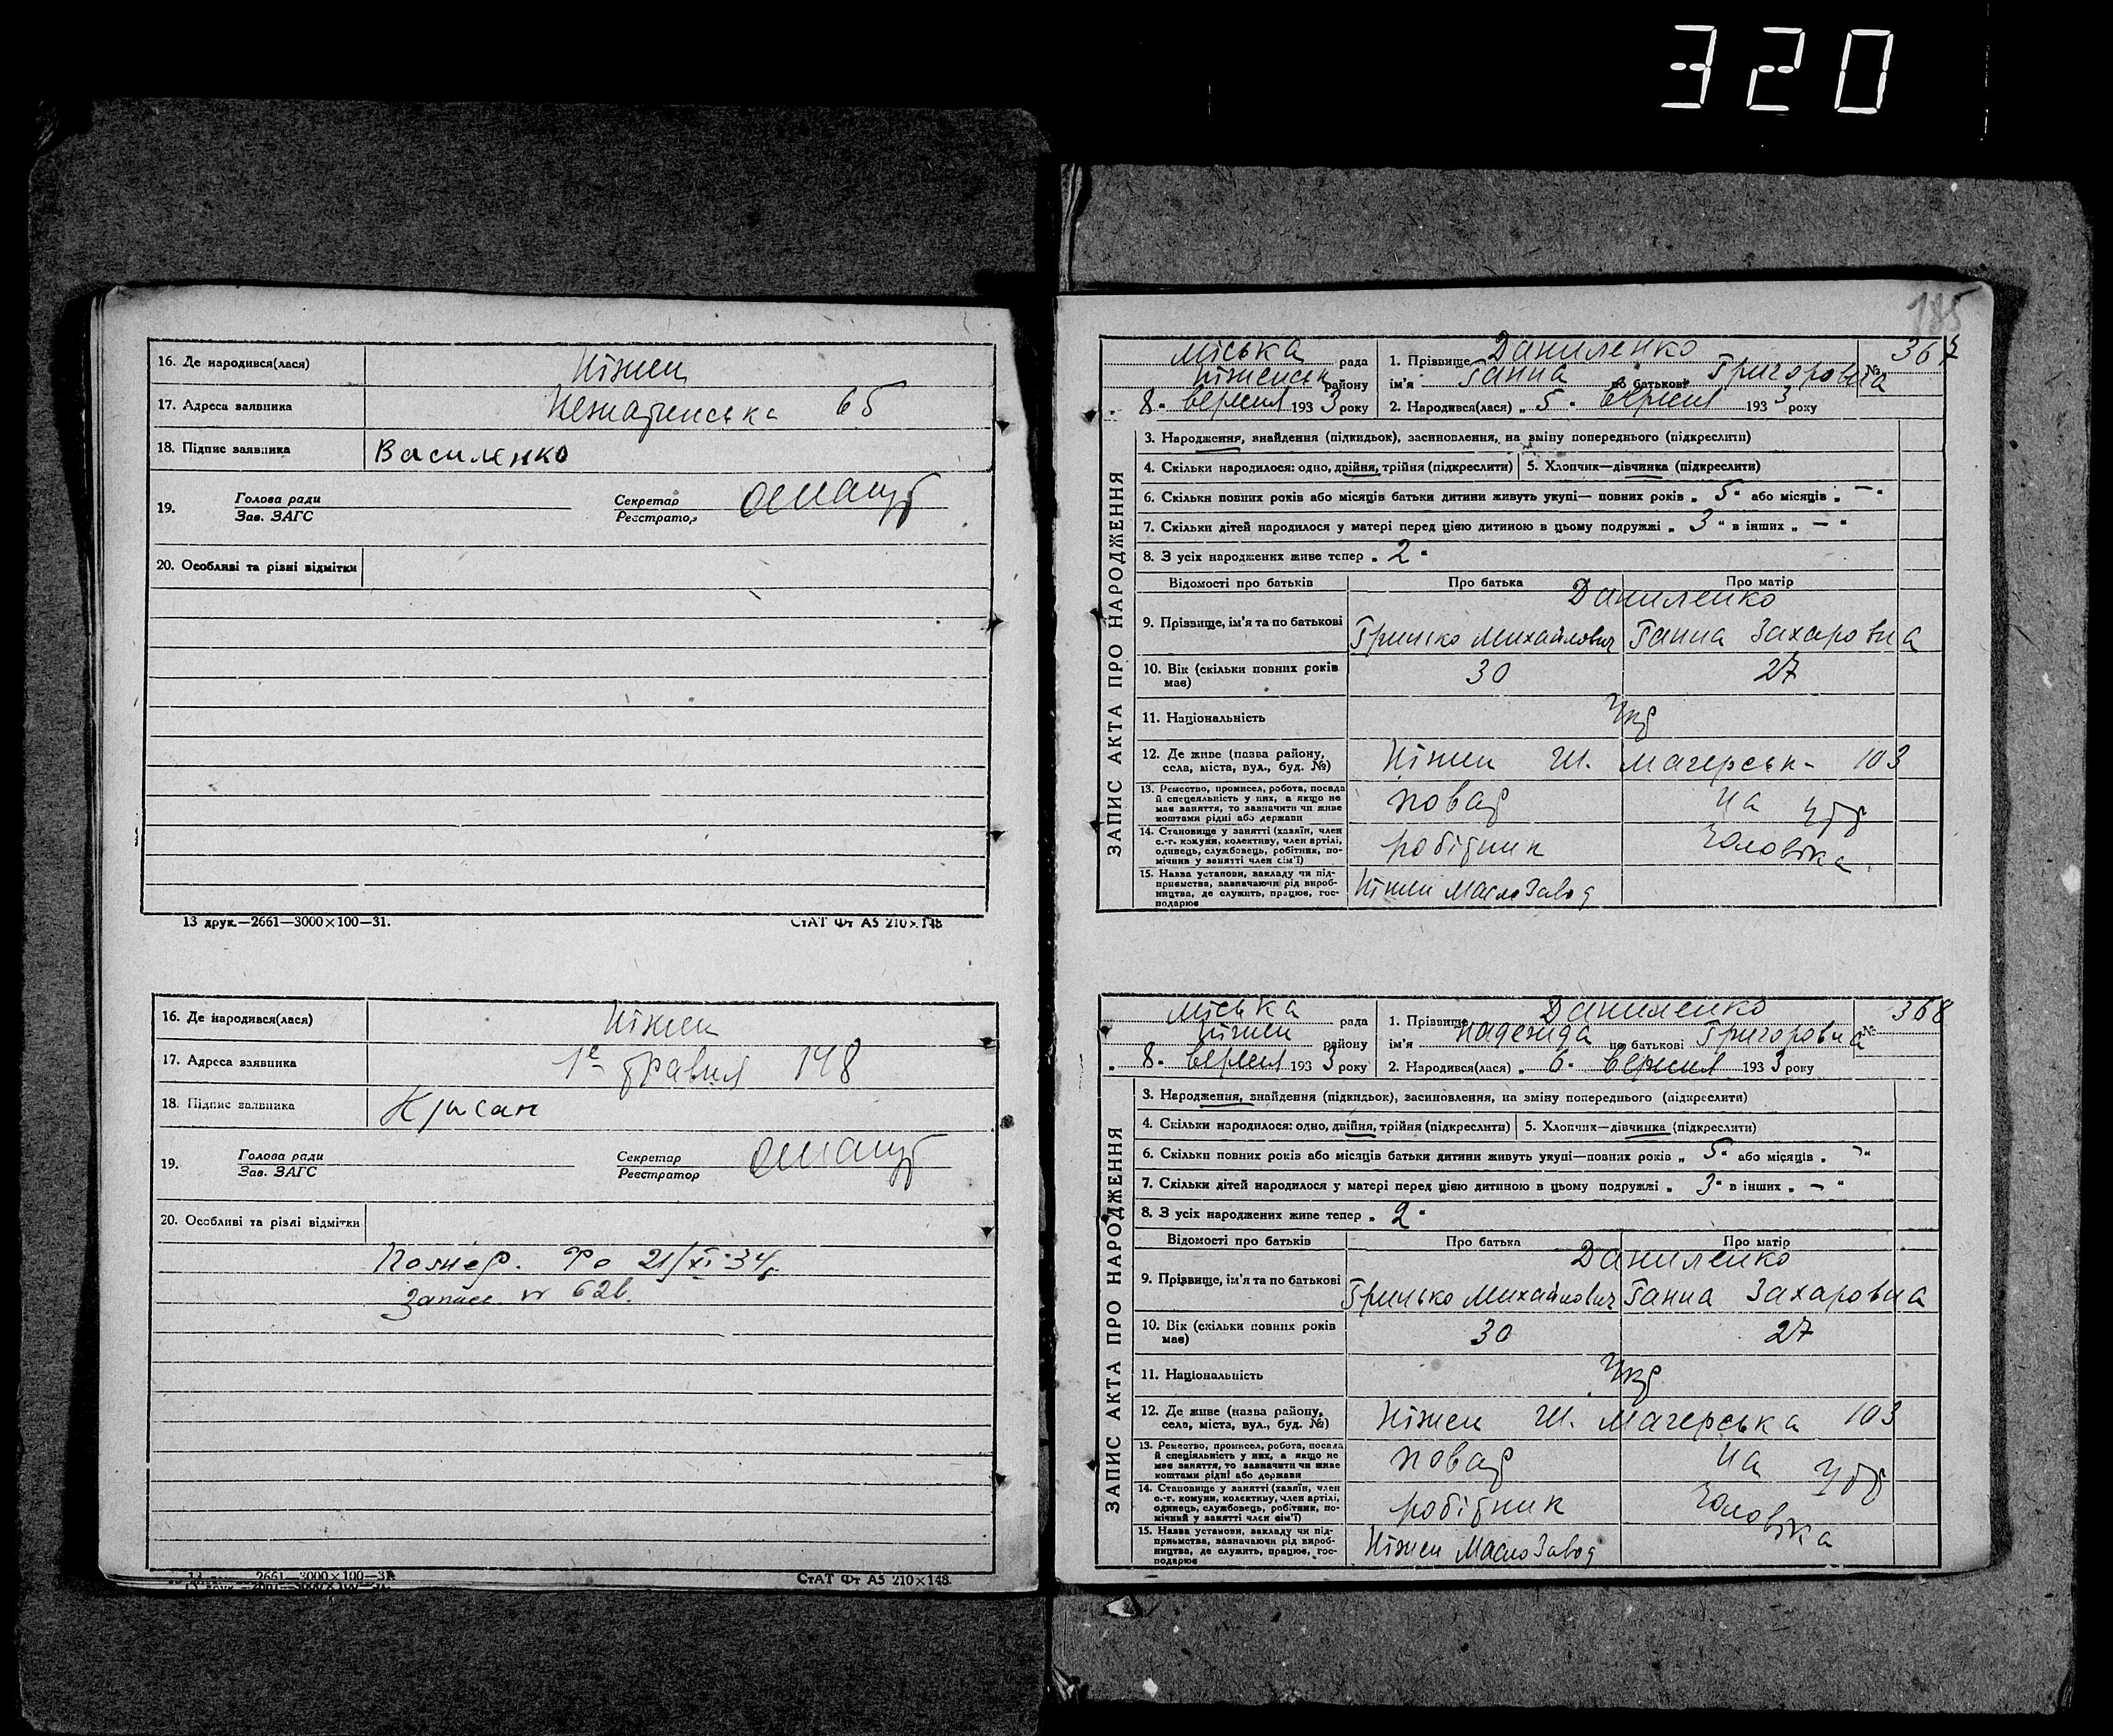 320
16. Де народився(лася) Ніжен
17. Адреса заявника 65
18. Підпис заявника Василенко
19. Голова ради Секретар
Зав. ЗАГС Реєстратор
20. Особливі та різні відмітки
13 друк.—2661—3000×100—31. СтАТ Фт А5 210×148
16. Де народився(лася) Ніжен
17. Адреса заявника 1е травня 148
18. Підпис заявника
19. Голова ради Секретар
Зав. ЗАГС Реєстратор
20. Особливі та різні відмітки
Помер. 21/XI-34
запись №
2661—3000×100—31 СтАТ Фт А5 210×148.
185
ЗАПИС АКТА ПРО НАРОДЖЕННЯ
Міська рада 1. Прізвище Даниленко № 367
Ніженськ району ім'я Ганна по батькові Григоровна
„ 8 " вересня 1933 року 2. Народився(лася) „ 5 " вересня 1933 року
3. Народження, знайдення (підкидьок), засиновлення, на зміну попереднього (підкреслити)
4. Скільки народилося: одно, двійня, трійня (підкреслити) 5. Хлопчик—дівчинка (підкреслити)
6. Скільки повних років або місяців батьки дитини живуть укупі— повних років „ 5 " або місяців „ — "
7. Скільки дітей народилося у матері перед цією дитиною в цьому подружжі „ 3 " в інших „ — "
8. З усіх народжених живе тепер „ 2 "
Відомості про батьків Про батька Про матір
Даниленко
9. Прізвище, ім'я та по батькові Грицько Михайлович Ганна Захаровна
10. Вік (скільки повних років має) 30 27
11. Національність Укр
12. Де живе (назва району, села, міста, вул., буд. №) Ніжен Ш. Магерськ- 103
13. Ремество, промисел, робота, посада й спеціяльність у них, а якщо не має заняття, то зазначити чи живе коштами рідні або держави повар на утр
14. Становище у занятті (хазяїн, член с.-г. комуни, колективу, член артілі, одинець, службовець, робітник, помічний у занятті член сім'ї) робітник чоловіка
15. Назва установи, закладу чи підприємства, зазначаючи рід виробництва, де служить, працює, господарює Ніжен МаслоЗавод
ЗАПИС АКТА ПРО НАРОДЖЕННЯ
Міська рада 1. Прізвище Даниленко № 368
Ніжен району ім'я Надежда по батькові Григоровна
„ 8 " вересня 1933 року 2. Народився(лася) „ 6 " вересня 1933 року
3. Народження, знайдення (підкидьок), засиновлення, на зміну попереднього (підкреслити)
4. Скільки народилося: одно, двійня, трійня (підкреслити) 5. Хлопчик—дівчинка (підкреслити)
6. Скільки повних років або місяців батьки дитини живуть укупі—повних років „ 5 " або місяців „ — "
7. Скільки дітей народилося у матері перед цією дитиною в цьому подружжі „ 3 " в інших „ — "
8. З усіх народжених живе тепер „ 2 "
Відомості про батьків Про батька Про матір
Даниленко
9. Прізвище, ім'я та по батькові Грицько Михайлович Ганна Захаровна
10. Вік (скільки повних років має) 30 27
11. Національність Укр
12. Де живе (назва району, села, міста, вул., буд. №) Ніжен Ш. Магерська 103
13. Ремество, промисел, робота, посада й спеціяльність у них, а якщо не має заняття, то зазначити чи живе коштами рідні або держави повар на утр
14. Становище у занятті (хазяїн, член с.-г. комуни, колективу, член артілі, одинець, службовець, робітник, помічний у занятті член сім'ї) робітник чоловіка
15. Назва установи, закладу чи підприємства, зазначаючи рід виробництва, де служить, працює, господарює Ніжен МаслоЗавод